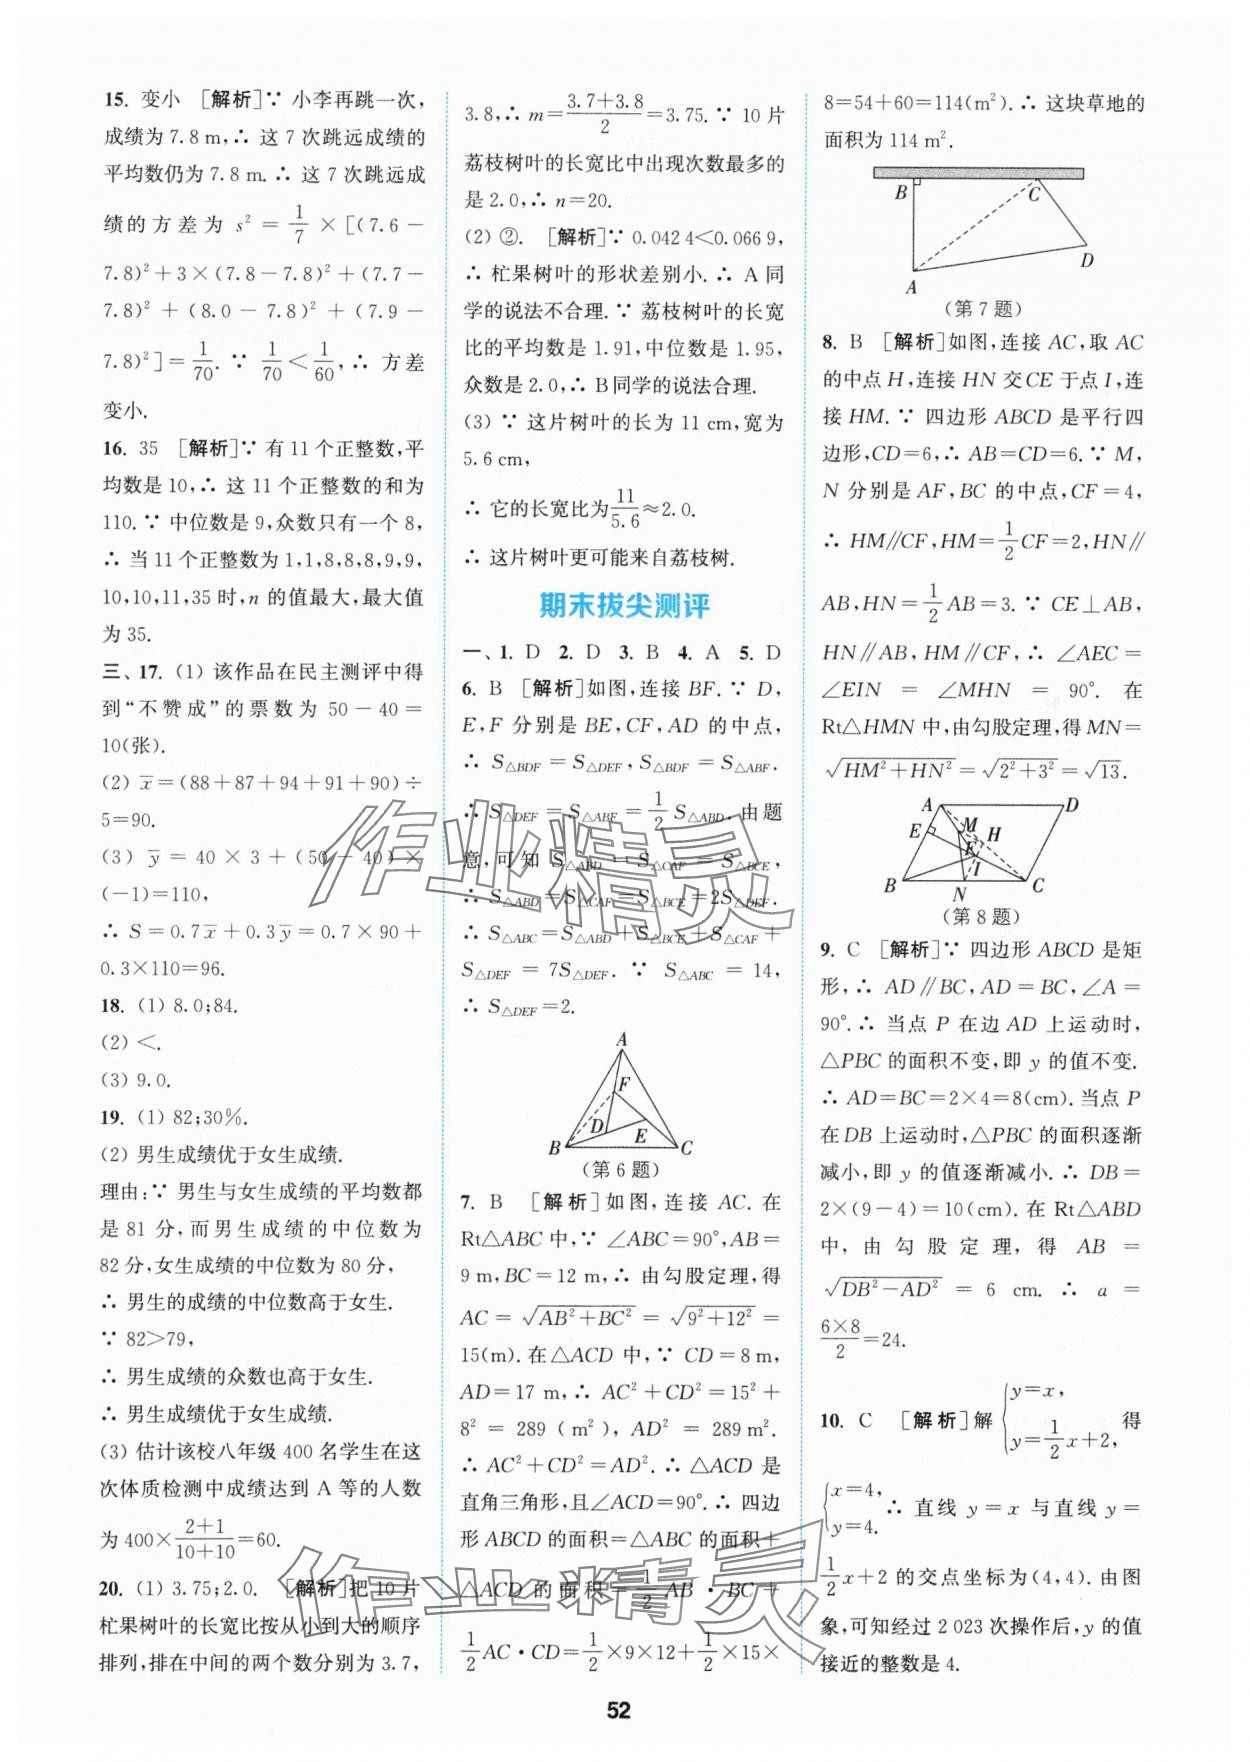 15. 变小 [解析]∵ 小李再跳一次,
成绩为 7.8 m,∴ 这 7 次跳远成绩的
平均数仍为 7.8 m.∴ 这 7 次跳远成
绩的方差为 s² = 1/7 × [(7.6 −
7.8)²+3×(7.8−7.8)²+(7.7−
7.8)² + (8.0 − 7.8)² + (7.9 −
7.8)²]=1/70. ∵ 1/70<1/60,∴ 方差
变小.
16. 35 [解析]∵ 有 11 个正整数,平
均数是 10,∴ 这 11 个正整数的和为
110.∵ 中位数是 9,众数只有一个 8,
∴ 当 11 个正整数为 1,1,8,8,8,9,9,
10,10,11,35 时,n 的值最大,最大值
为 35.
三、17. (1) 该作品在民主测评中得
到“不赞成”的票数为 50 − 40 =
10(张).
(2) x̄=(88+87+94+91+90)÷
5=90.
(3) ȳ = 40 × 3 + (50 − 40) ×
(−1)=110,
∴ S=0.7x̄+0.3ȳ=0.7×90+
0.3×110=96.
18. (1) 8.0;84.
(2) <.
(3) 9.0.
19. (1) 82;30%.
(2) 男生成绩优于女生成绩.
理由:∵ 男生与女生成绩的平均数都
是 81 分,而男生成绩的中位数为
82 分,女生成绩的中位数为 80 分,
∴ 男生的成绩的中位数高于女生.
∵ 82>79,
∴ 男生成绩的众数也高于女生.
∴ 男生成绩优于女生成绩.
(3) 估计该校八年级 400 名学生在这
次体质检测中成绩达到 A 等的人数
为 400×(2+1)/(10+10)=60.
20. (1) 3.75;2.0. [解析]把 10 片
杧果树叶的长宽比按从小到大的顺序
排列,排在中间的两个数分别为 3.7,
3.8,∴ m=(3.7+3.8)/2=3.75.∵ 10 片
荔枝树叶的长宽比中出现次数最多的
是 2.0,∴ n=20.
(2) ②. [解析]∵ 0.042 4<0.066 9,
∴ 杧果树叶的形状差别小.∴ A 同
学的说法不合理.∵ 荔枝树叶的长宽
比的平均数是 1.91,中位数是 1.95,
众数是 2.0,∴ B同学的说法合理.
(3) ∵ 这片树叶的长为 11 cm,宽为
5.6 cm,
∴ 它的长宽比为11/5.6≈2.0.
∴ 这片树叶更可能来自荔枝树.
期末拔尖测评
一、1. D 2. D 3. B 4. A 5. D
6. B [解析]如图,连接 BF.∵ D,
E,F 分别是 BE,CF,AD 的中点,
∴ S△BDF = S△DEF , S△BDF = S△ABF.
∴ S△DEF = S△ABF = 1/2 S△ABD. 由题
意,可知 S△ABD = S△CAF = S△BCE,
∴ S△ABD=S△CAF=S△BCE=2S△DEF.
∴ S△ABC=S△ABD+S△BCE+S△CAF+
S△DEF = 7S△DEF. ∵ S△ABC = 14,
∴ S△DEF=2.
A
F
D
E
B
C
(第 6 题)
7. B [解析]如图,连接 AC. 在
Rt△ABC 中,∵ ∠ABC=90°,AB=
9 m,BC=12 m,∴ 由勾股定理,得
AC = √(AB²+BC²) = √(9²+12²) =
15(m).在△ACD 中,∵ CD=8 m,
AD=17 m,∴ AC²+CD²=15²+
8² = 289 (m²), AD² = 289 m².
∴ AC²+CD²=AD².∴ △ACD 是
直角三角形,且∠ACD=90°.∴ 四边
形 ABCD 的面积=△ABC 的面积+
△ACD 的面积=1/2 AB · BC +
1/2 AC·CD=1/2×9×12+1/2×15×
8=54+60=114(m²).∴ 这块草地的
面积为 114 m².
B
C
D
A
(第 7 题)
8. B [解析]如图,连接 AC,取 AC
的中点 H,连接 HN 交CE 于点 I,连
接 HM.∵ 四边形 ABCD 是平行四
边形,CD=6,∴ AB=CD=6.∵ M,
N 分别是 AF,BC 的中点,CF=4,
∴ HM∥CF,HM=1/2 CF=2,HN∥
AB,HN=1/2 AB=3.∵ CE⊥AB,
HN∥AB,HM∥CF,∴ ∠AEC=
∠EIN = ∠MHN = 90°. 在
Rt△HMN 中,由勾股定理,得 MN=
√(HM²+HN²)=√(2²+3²)=√13.
A
D
E
M
H
F
I
B
N
C
(第 8 题)
9. C [解析]∵ 四边形 ABCD 是矩
形,∴ AD∥BC,AD=BC,∠A=
90°.∴ 当点 P 在边 AD 上运动时,
△PBC 的面积不变,即 y 的值不变.
∴ AD=BC=2×4=8(cm).当点 P
在DB 上运动时,△PBC 的面积逐渐
减小,即 y 的值逐渐减小.∴ DB=
2×(9−4)=10(cm).在 Rt△ABD
中,由勾股定理,得 AB =
√(DB²−AD²) = 6 cm. ∴ a =
(6×8)/2=24.
10. C [解析]解{y=x, y=1/2 x+2, 得
{x=4, y=4. ∴ 直线 y=x 与直线 y=
1/2 x+2 的交点坐标为(4,4).由图
象,可知经过 2 023 次操作后,y 的值
接近的整数是 4.
作业精灵
作业精灵
52